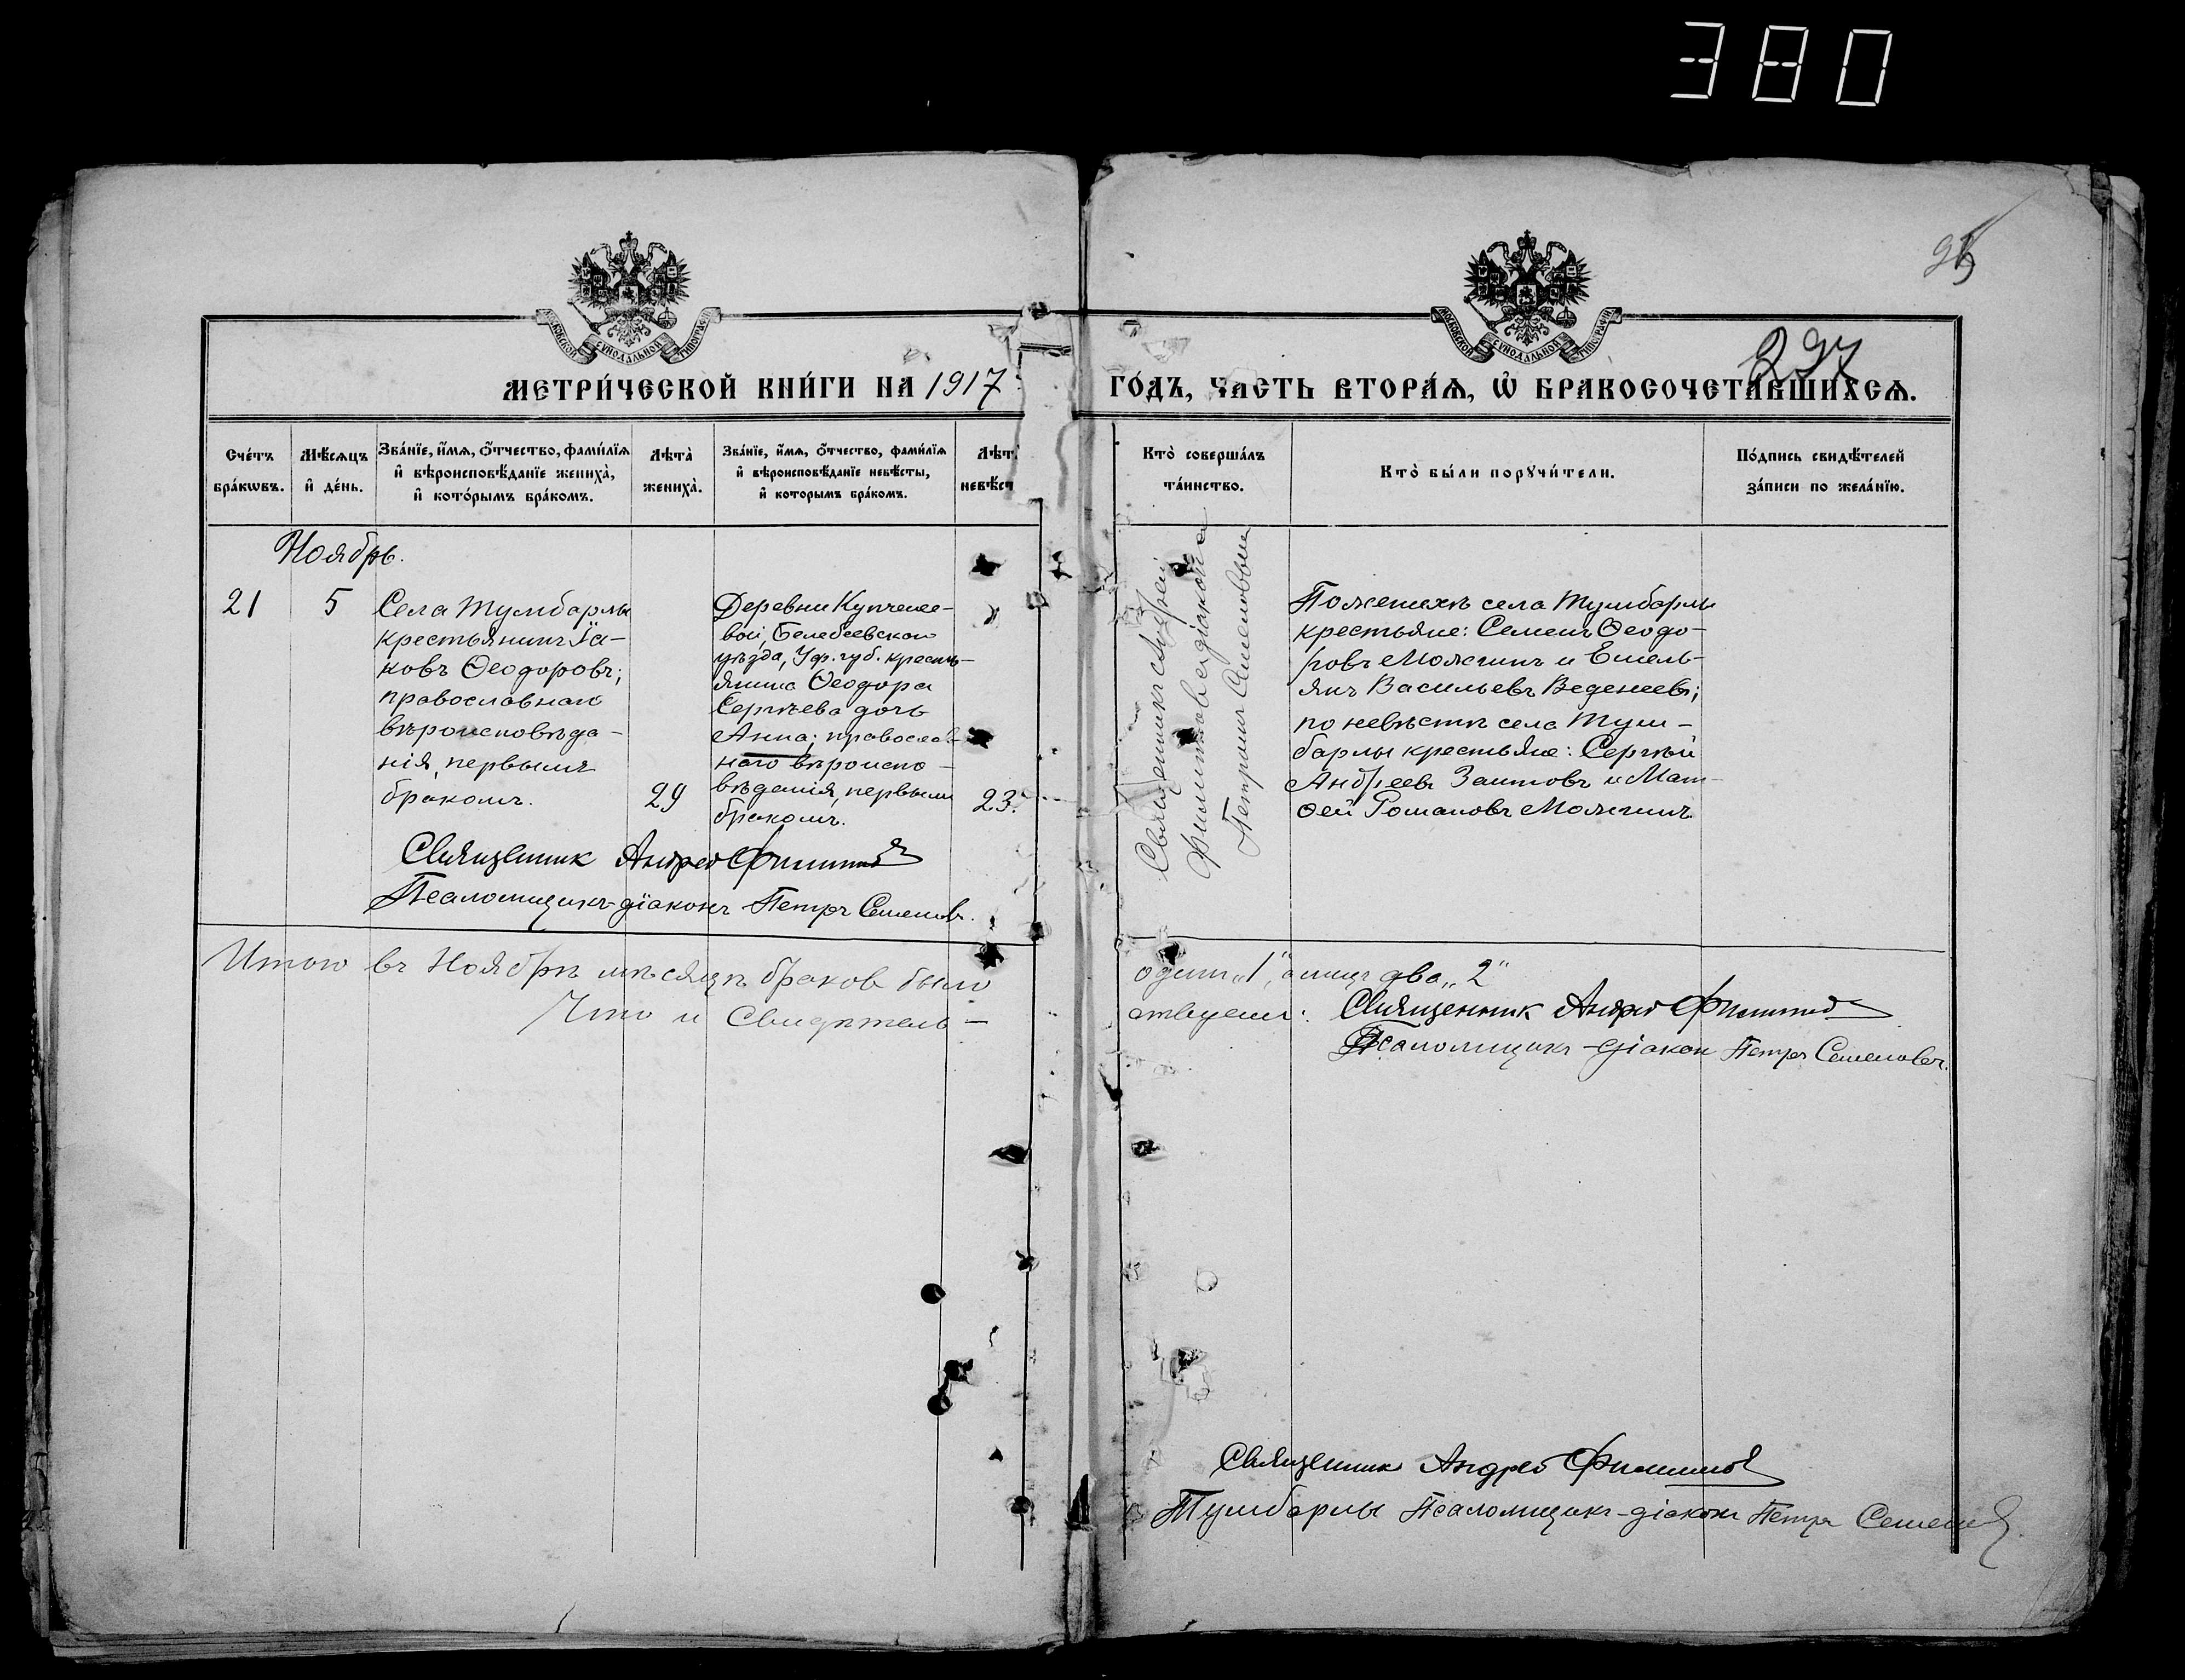 380
95
297
МОСКОВСКОЙ СУНОДАЛЬНОЙ ТИПОГРАФІИ
МОСКОВСКОЙ СУНОДАЛЬНОЙ ТИПОГРАФІИ
МЕТРИ́ЧЕСКОЙ КНИ́ГИ НА 1917 ГО́ДЪ, ЧАСТЬ ВТОРА́Я, Ѡ БРАКОСОЧЕТА́ВШИХСЯ.
Сче́тъ бра́кѡвъ.
Мѣ́сяцъ и҆ де́нь.
Зва́нїе, и҆́мя, ѻ҆́тчество, фами́лїя и҆ вѣроисповѣ́данїе жениха̀, и҆ кото́рымъ бра́комъ.
Лѣта̀ жениха̀.
Зва́нїе, и҆́мя, ѻ҆́тчество, фами́лїя и҆ вѣроисповѣ́данїе невѣ́сты, и҆ которымъ бра́комъ.
Лѣт невѣ́ст
Кто̀ соверша́лъ та́инство.
Кто̀ бы́ли порꙋчи́тели.
По́дпись свидѣ́телей за́писи по жела́нїю.
Ноябрь.
21
5
Села Тумбарлы
крестьянинъ Іа-
ковъ Ѳеодоровъ;
православнаго
вѣроисповѣда-
нія, первымъ
бракомъ.
29
Деревни Купчене-
вой, Белебеевскаго
уѣзда, Уф. губ. кресть-
янина Ѳеодора
Сергѣева дочь
Анна; православ-
наго вѣроиспо-
вѣданія, первымъ
бракомъ.
23.
Священникъ Андрей
Филиппов а діакон
Петромъ Семеновым
По женихѣ села Тумбарлы
крестьяне: Семенъ Ѳеодо-
ровъ Можгинъ и Емель-
янъ Васильевъ Веденеевъ;
по невѣстѣ села Тум-
барлы крестьяне: Сергѣй
Андреевъ Заитовъ и Мат-
ѳей Романовъ Можгинъ.
Священник Андрей Филиппов
Псаломщикъ-діаконъ Петръ Семеновъ.
Итого въ Ноябрѣ мѣсяцѣ браков было одинъ „1“, а лицъ два „2“
Что и Свидѣтель-ствуемъ: Священник Андрей Филиппов
Псаломщикъ-діакон Петръ Семеновъ.
Священник Андрей Филиппов
Тумбарлы Псаломщикъ-діаконъ Петръ Семенов.